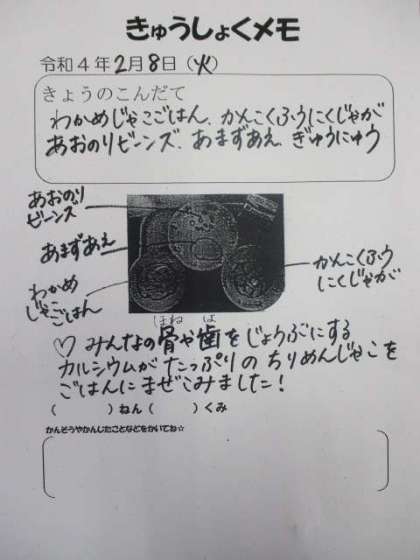 きゅうしょくメモ
令和4年2月8日（火）
きょうのこんだて
わかめじゃこごはん、かんこくふうにくじゃが
あおのりビーンズ、あまずあえ、ぎゅうにゅう
あおのり
ビーンズ
あまずあえ
わかめ
じゃこごはん
かんこくふう
にくじゃが
ほね は
♡ みんなの骨や歯をじょうぶにする
カルシウムがたっぷりのちりめんじゃこを
ごはんにまぜこみました！
（　　　）ねん（　　　）くみ
かんそうやかんじたことなどをかいてね☆